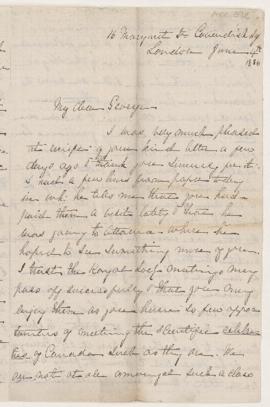 16 Margaret St Cavendish Sq
London June 4th
1886
My dear George
I was very much pleased
the receipt of your kind letter a few
days ago & thank you sincerely for it.
I had a few lines from papa to day
in wh. he tells me that you had
paid them a visit lately & that he
was going to Ottawa where he
hoped to see something more of you.
I trust the Royal Socy meetings may
pass off successfully & that you may
enjoy them as you have so few oppor
tunities of meeting the scientific celebri
ties of Canada such as they are. We
are not at all amongst such a class